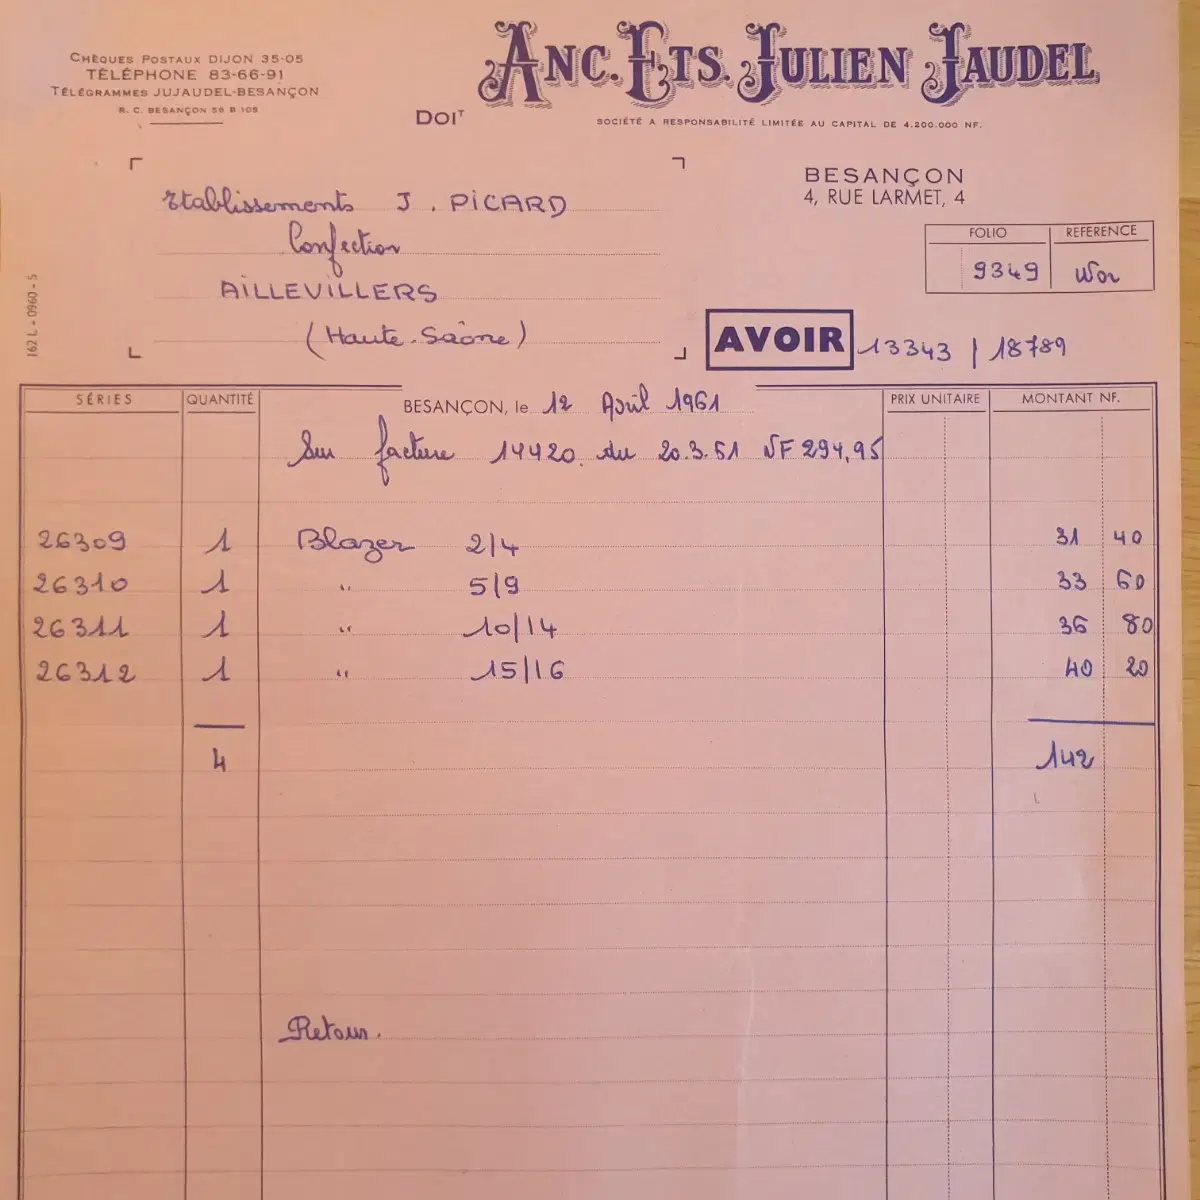 CHÈQUES POSTAUX DIJON 35-05
TÉLÉPHONE 83-66-91
TÉLÉGRAMMES JUJAUDEL-BESANÇON
R. C. BESANÇON 56 B 105
ANC. ETS. JULIEN JAUDEL
DOIT
SOCIÉTÉ A RESPONSABILITÉ LIMITÉE AU CAPITAL DE 4.200.000 NF.
BESANÇON
4, RUE LARMET, 4
Etablissements J. PICARD
Confection
AILLEVILLERS
(Haute-Saône)
FOLIO REFERENCE
9349 Wor
162 L - 0960 - 5
AVOIR 13343 / 18789
SÉRIES QUANTITÉ BESANÇON, le 12 Avril 1961 PRIX UNITAIRE MONTANT NF.
Sur facture 14420 du 20.3.61 NF 294,95
26309 1 Blazer 2/4 31 40
26310 1 " 5/9 33 60
26311 1 " 10/14 36 80
26312 1 " 15/16 40 20
4 142
Retour.